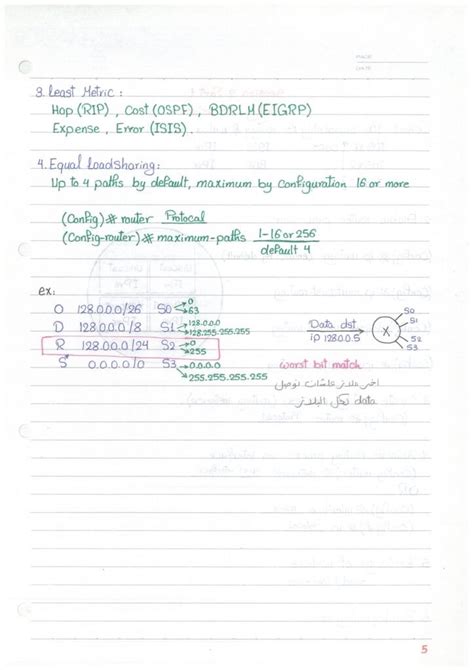 3. Least Metric:
Hop (RIP), Cost (OSPF), BDRLM (EIGRP)
Expense, Error (ISIS).
4. Equal loadsharing:
Up to 4 paths by default, maximum by configuration 16 or more
(Config)# router Protocal
(Config-router)# maximum-paths 1-16 or 256
default 4
ex:
O 128.0.0.0/26 S0 → 0
→ 63
D 128.0.0.0/8 S1 → 128.0.0.0
→ 128.255.255.255
R 128.0.0.0/24 S2 → 0
→ 255
S* 0.0.0.0/0 S3 → 0.0.0.0
→ 255.255.255.255
Data dst
IP 128.0.0.5
X
S0
S1
S2
S3
worst bit match
علشان توصل
data لكل
5